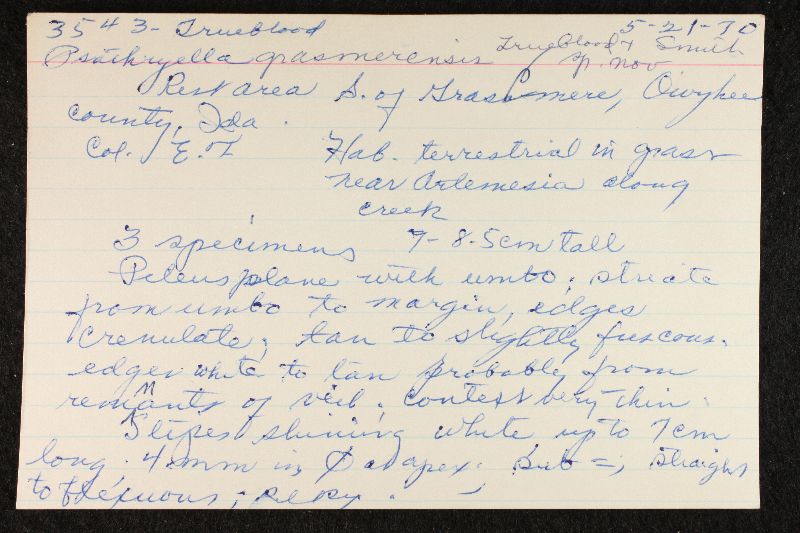 3543- Trueblood 5-21-70
Psathryella grasmerensis Trueblood & Smith
sp. nov
Rest area S. of Grassmere, Owyhee
County, Ida.
Col. E.T Hab. terrestrial in grass
near Artemesia along
creek
3 specimens 7-8.5cm tall
Pileus plane with umbo; striate
from umbo to margin, edges
crenulate; tan to slightly fuscous.
edges white to tan probably from
remnants of veil; context very thin.
Stipes shining white up to 7cm
long. 4 mm in Ø at apex; sub =; straight
to flexuous; silky.